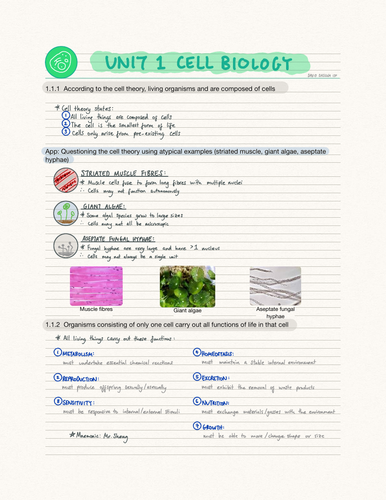 UNIT 1 CELL BIOLOGY
1.1.1 According to the cell theory, living organisms and are composed of cells
* Cell theory states:
1 All living things are composed of cells
2 The cell is the smallest form of life
3 Cells only arise from pre-existing cells
App: Questioning the cell theory using atypical examples (striated muscle, giant algae, aseptate
hyphae)
STRIATED MUSCLE FIBRES:
* Muscle cells fuse to form long fibres with multiple nuclei
∴ Cells may not function autonomously
GIANT ALGAE:
* Some algal species grow to large sizes
∴ Cells may not all be microscopic
ASEPTATE FUNGAL HYPHAE:
* Fungal hyphae are very large and have >1 nucleus
∴ Cells may not always be a single unit
Muscle fibres
Giant algae
Aseptate fungal
hyphae
1.1.2 Organisms consisting of only one cell carry out all functions of life in that cell
* All living things carry out these functions:
1 METABOLISM:
must undertake essential chemical reactions
2 REPRODUCTION:
must produce offspring sexually/asexually
3 SENSITIVITY:
must be responsive to internal/external stimuli
* Mnemonic: Mr. Sheng
4 HOMEOSTASIS:
must maintain a stable internal environment
5 EXCRETION:
must exhibit the removal of waste products
6 NUTRITION:
must exchange materials/gases with the environment
7 GROWTH:
must be able to move/change shape or size